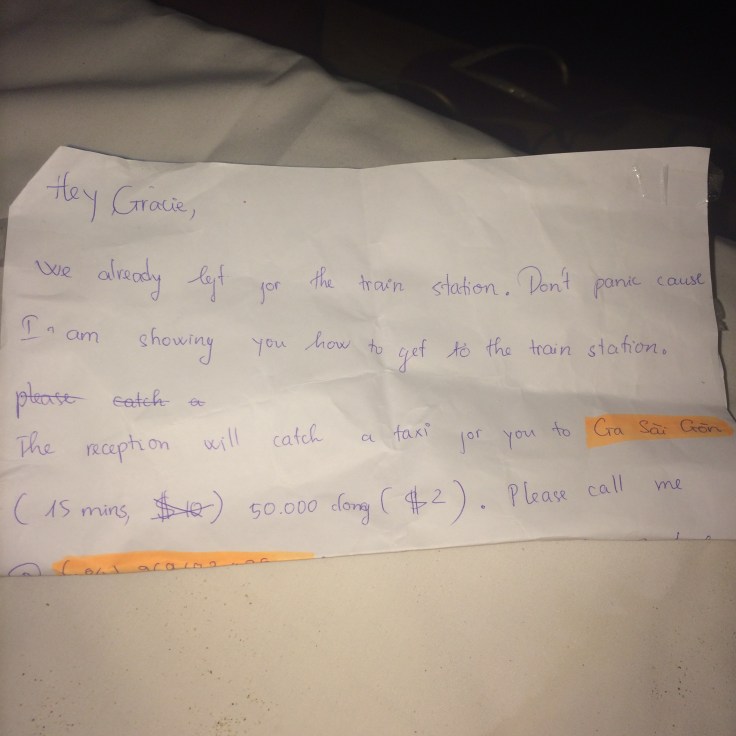 Hey Gracie,
We already left for the train station. Don't panic cause
I am showing you how to get to the train station.
please catch a
The reception will catch a taxi for you to Ga Sài Gòn
( 15 mins, $10) 50.000 dong ( $2). Please call me